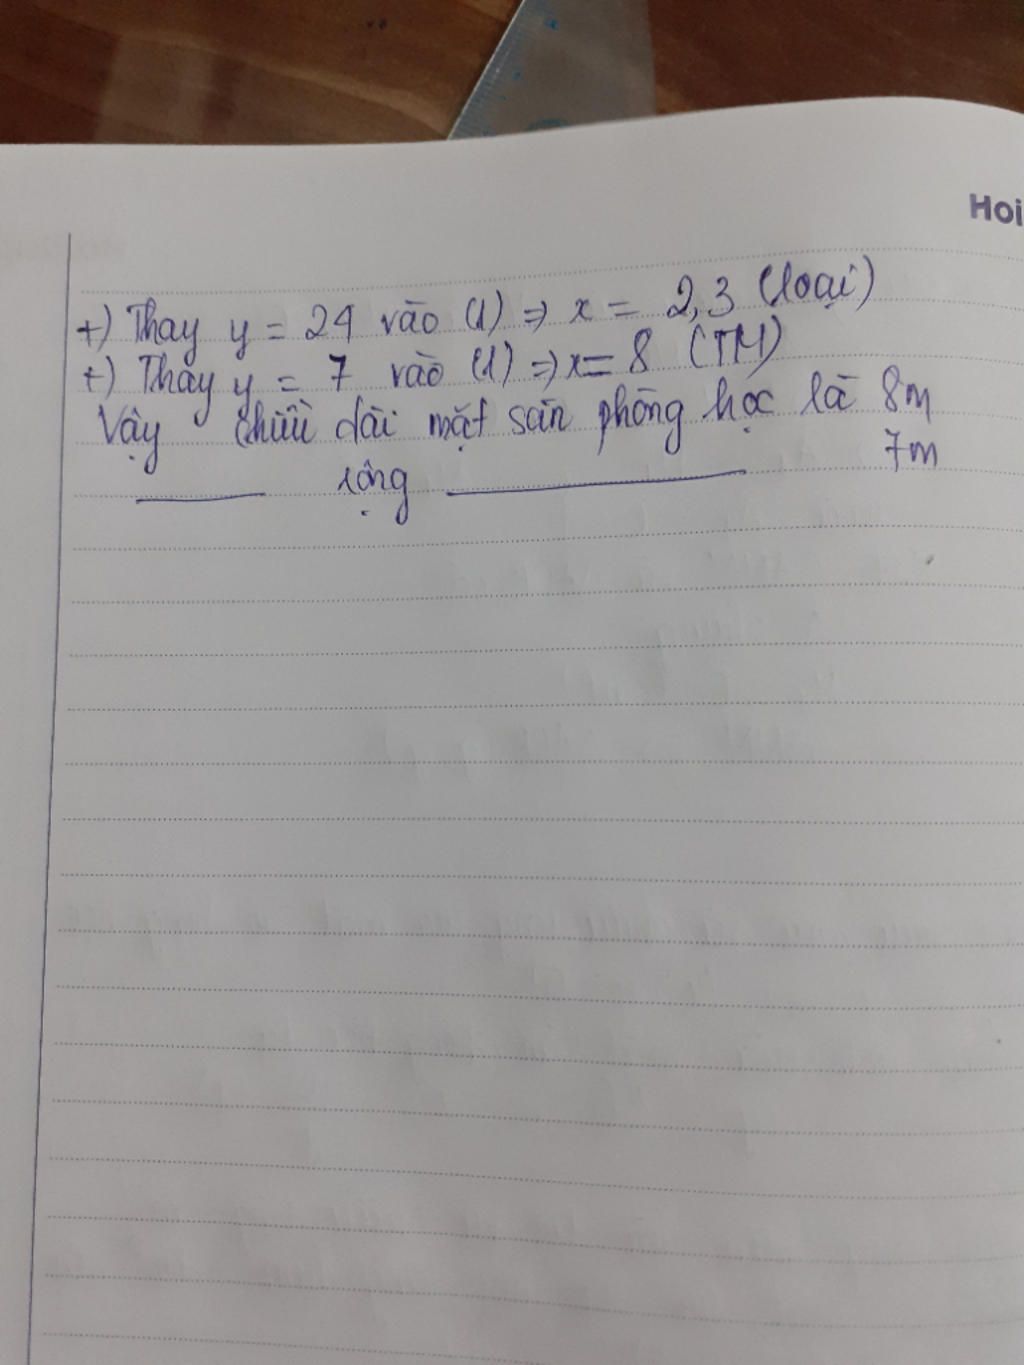 Hoi
+) Thay y = 24 vào (1) => x = 2,3 (loại)
+) Thay y = 7 vào (1) => x = 8 (TM)
Vậy chiều dài mặt sàn phòng học là 8m
rộng 7m